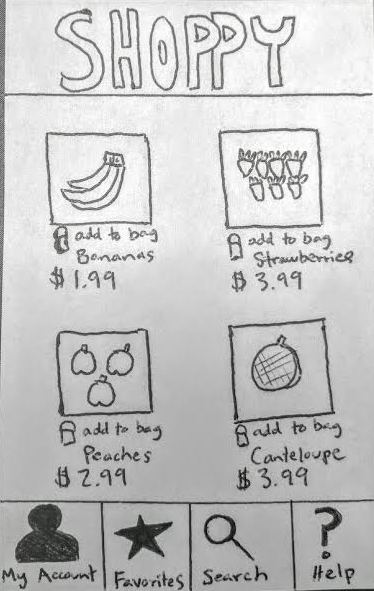 SHOPPY
add to bag
Bananas
$1.99
add to bag
Strawberries
$3.99
add to bag
Peaches
$2.99
add to bag
Canteloupe
$3.99
My Account
Favorites
Search
? Help